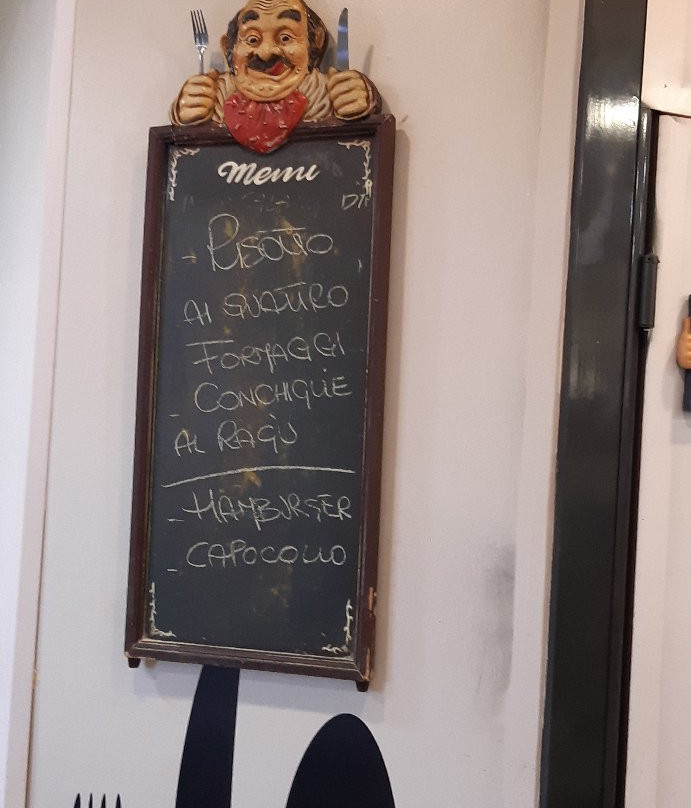 Menu
- RISOTTO
AI QUATTRO
FORMAGGI
- CONCHIGLIE
AL RAGÙ
- HAMBURGER
- CAPOCOLLO